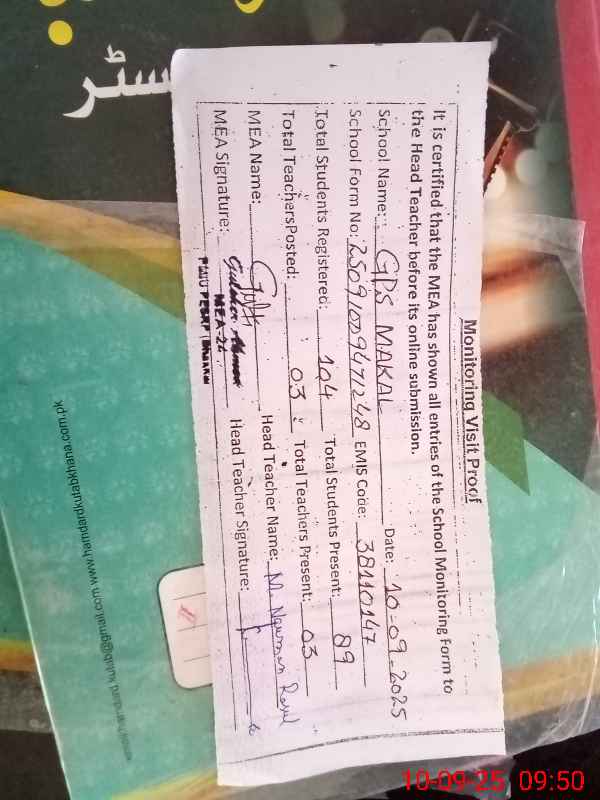 سٹر
Monitoring Visit Proof
It is certified that the MEA has shown all entries of the School Monitoring Form to
the Head Teacher before its online submission.
School Name: GPS MAKAL Date: 10-09-2025
School Form No: 25091009471248 EMIS Code: 38110147
Total Students Registered: 104 Total Students Present: 89
Total Teachers Posted: 03 Total Teachers Present: 03
MEA Name: Head Teacher Name: M. Nauman
MEA Signature: MEA-22 Head Teacher Signature:
www.hamdardkutabkhana.com.pk
10-09-25 09:50